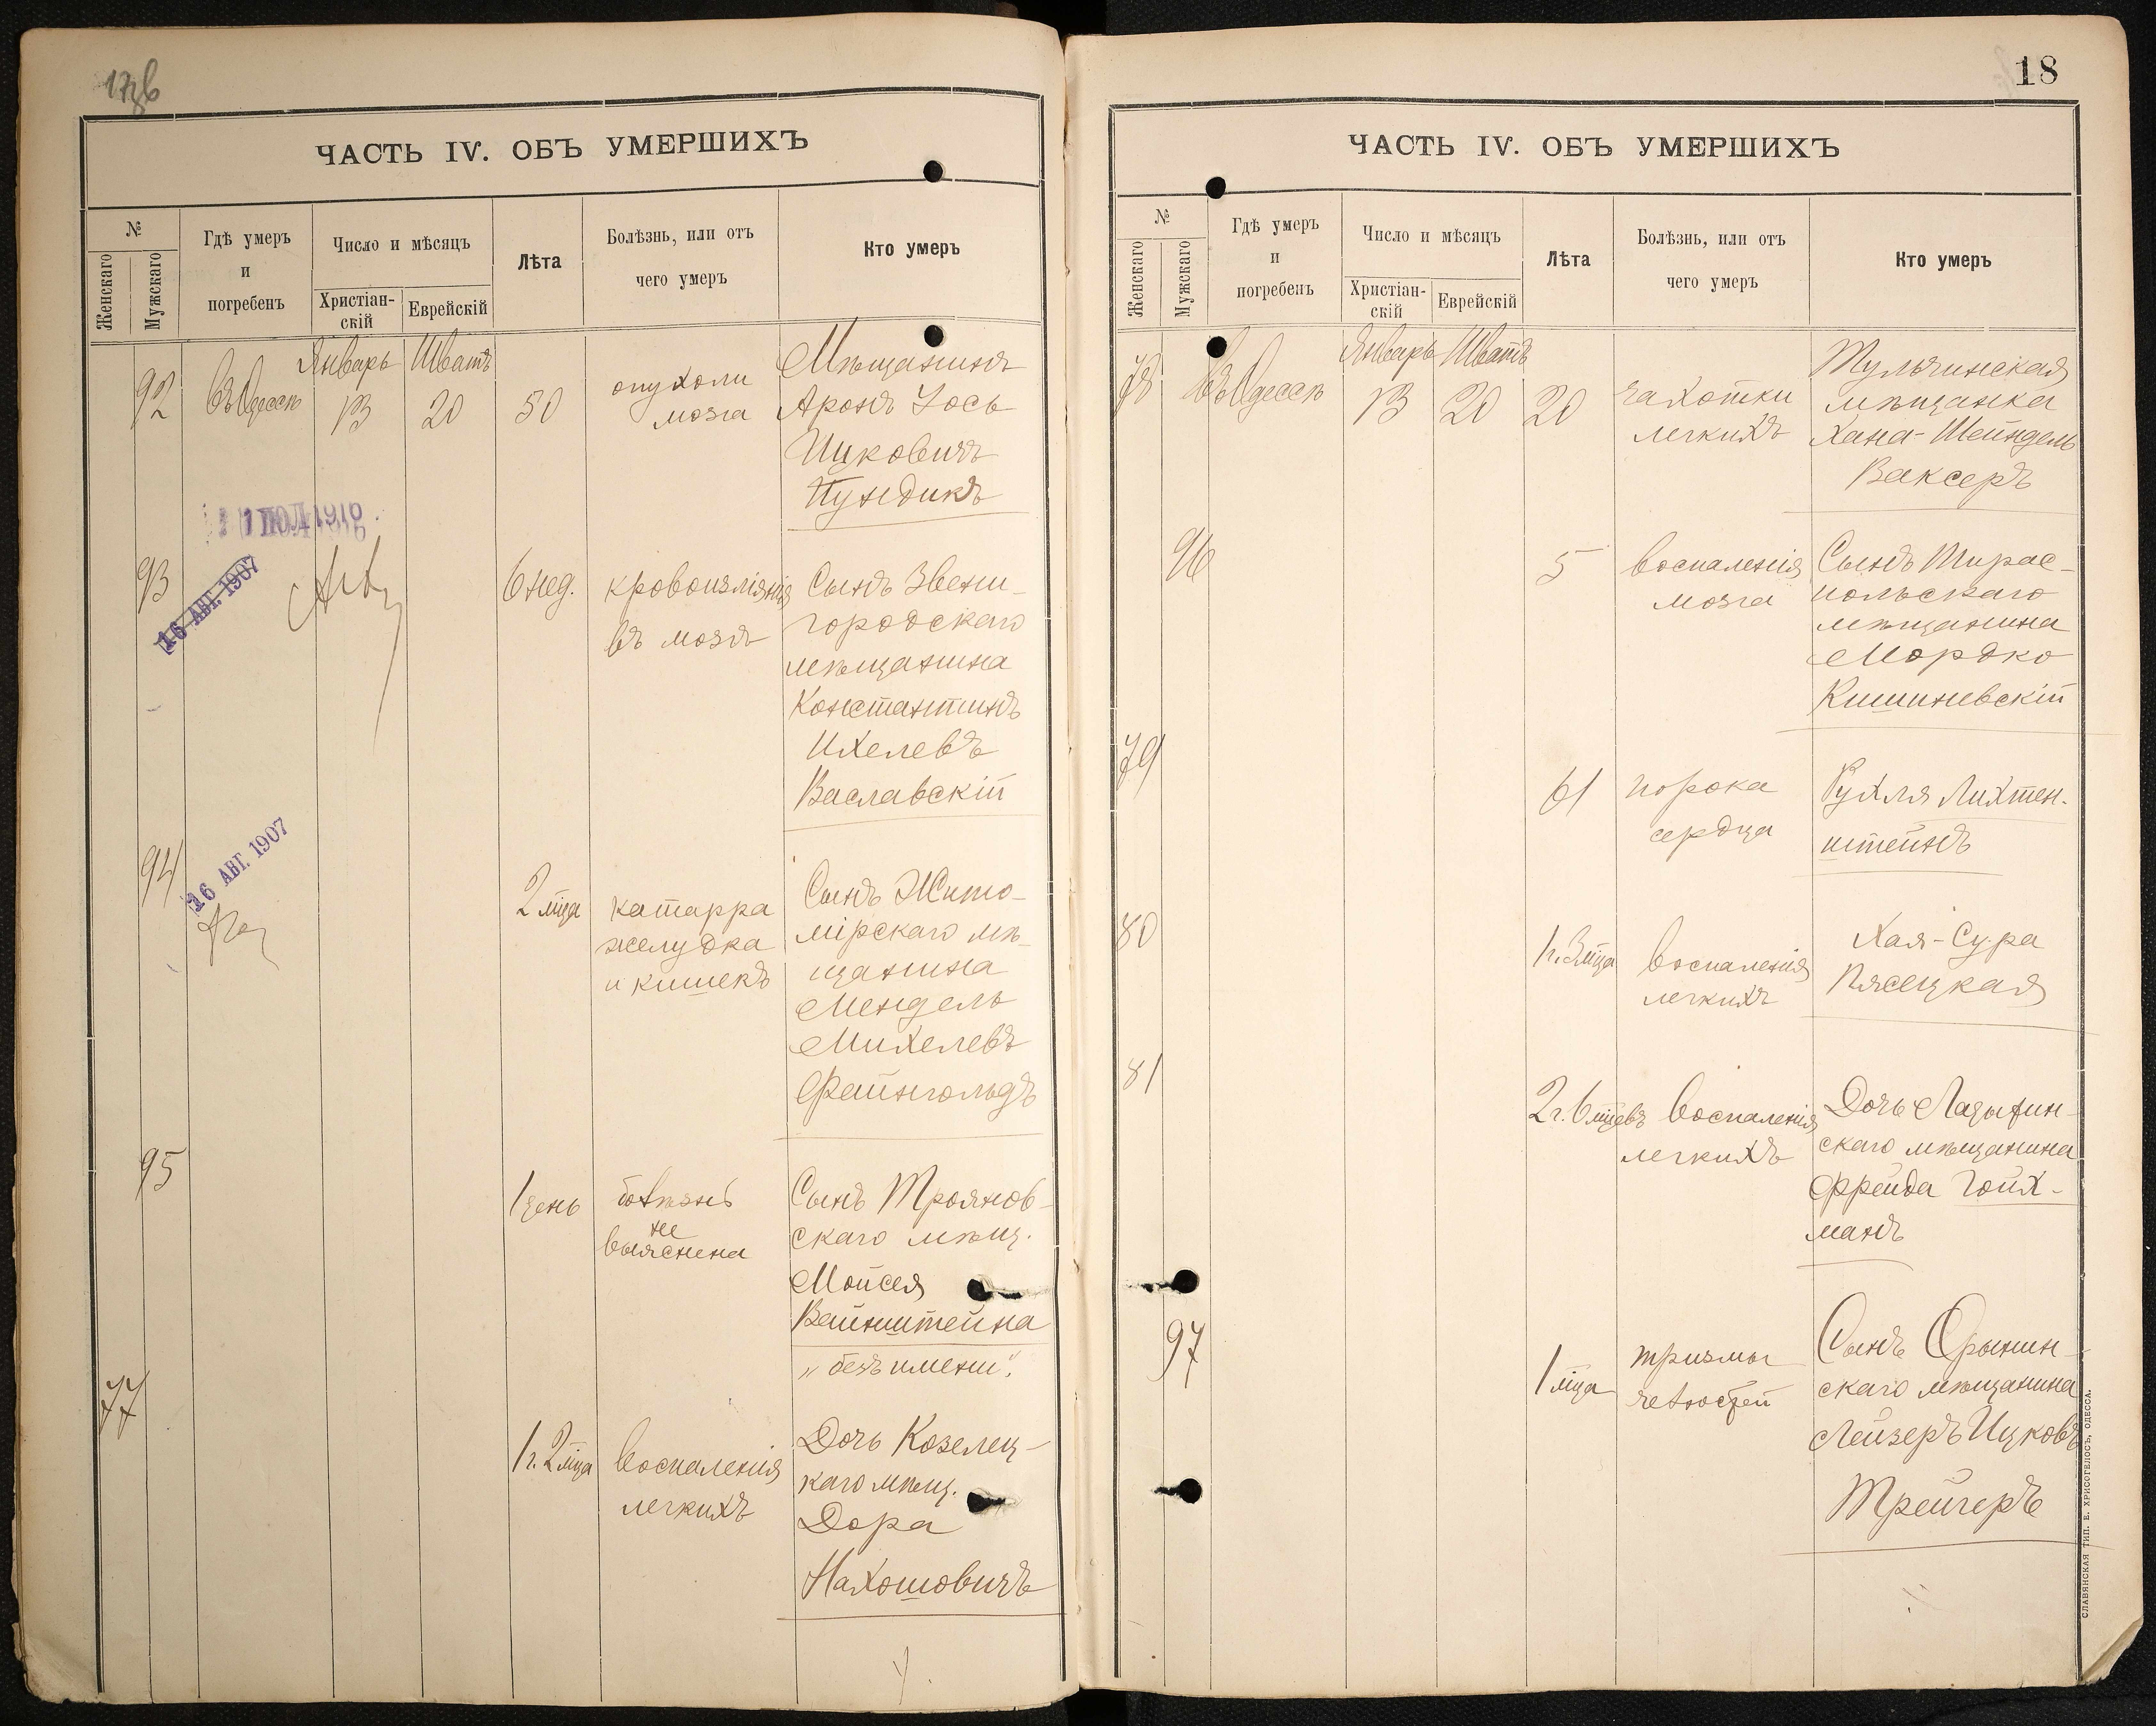 ЧАСТЬ IV. ОБЪ УМЕРШИХЪ
№
Женскаго
Мужскаго
Гдѣ умеръ
и
погребенъ
Число и мѣсяцъ
Христіан-
скій
Еврейскій
Лѣта
Болѣзнь, или отъ
чего умеръ
Кто умеръ
92
Въ Одессѣ
Январь
13
Шватъ
20
50
опухоли
мозга
Мѣщанинъ
Аронъ Іось
Ицковичъ
Пундикъ
16 АВГ. 1907
93
6 нед.
кровоизліянія
въ мозгъ
Сынъ Звени-
городскаго
мѣщанина
Константинъ
Ихелевъ
Ваславскій
16 АВГ. 1907
94
2 мца
катарра
желудка
и кишекъ
Сынъ Жито-
мірскаго мѣ-
щанина
Мендель
Михелевъ
Файнгольдъ
95
1 день
болѣзнь
не
выяснена
Сынъ Трояновъ-
скаго мѣщ.
Мойсея
Вайнштейна
„безъ имени".
77
1 г. 2 мца
воспаленія
легкихъ
Дочь Козелец-
каго мѣщ.
Дора
Нахошовичъ
18
ЧАСТЬ IV. ОБЪ УМЕРШИХЪ
№
Женскаго
Мужскаго
Гдѣ умеръ
и
погребенъ
Число и мѣсяцъ
Христіан-
скій
Еврейскій
Лѣта
Болѣзнь, или отъ
чего умеръ
Кто умеръ
78
Въ Одессѣ
Январь
13
Шватъ
20
20
чахотки
легкихъ
Тульчинская
мѣщанка
Хана-Шейндель
Ваксеръ
96
5
воспаленія
мозга
Сынъ Тирас-
польскаго
мѣщанина
Мордко
Кишиневскій
79
61
порока
сердца
Рухля Лихтен-
штейнъ
80
1 г. 3 мца
воспаленія
легкихъ
Хая-Сура
Пясецкая
81
2 г. 6 мцевъ
воспаленія
легкихъ
Дочь Ладыжин-
скаго мѣщанина
Фрейда Гойх-
манъ
97
1 мца
тризмы
челюстей
Сынъ Орынин-
скаго мѣщанина
Лейзеръ Ицковъ
Трейгеръ
СЛАВЯНСКАЯ ТИП. Е. ХРИСОГЕЛОСЪ, ОДЕССА.